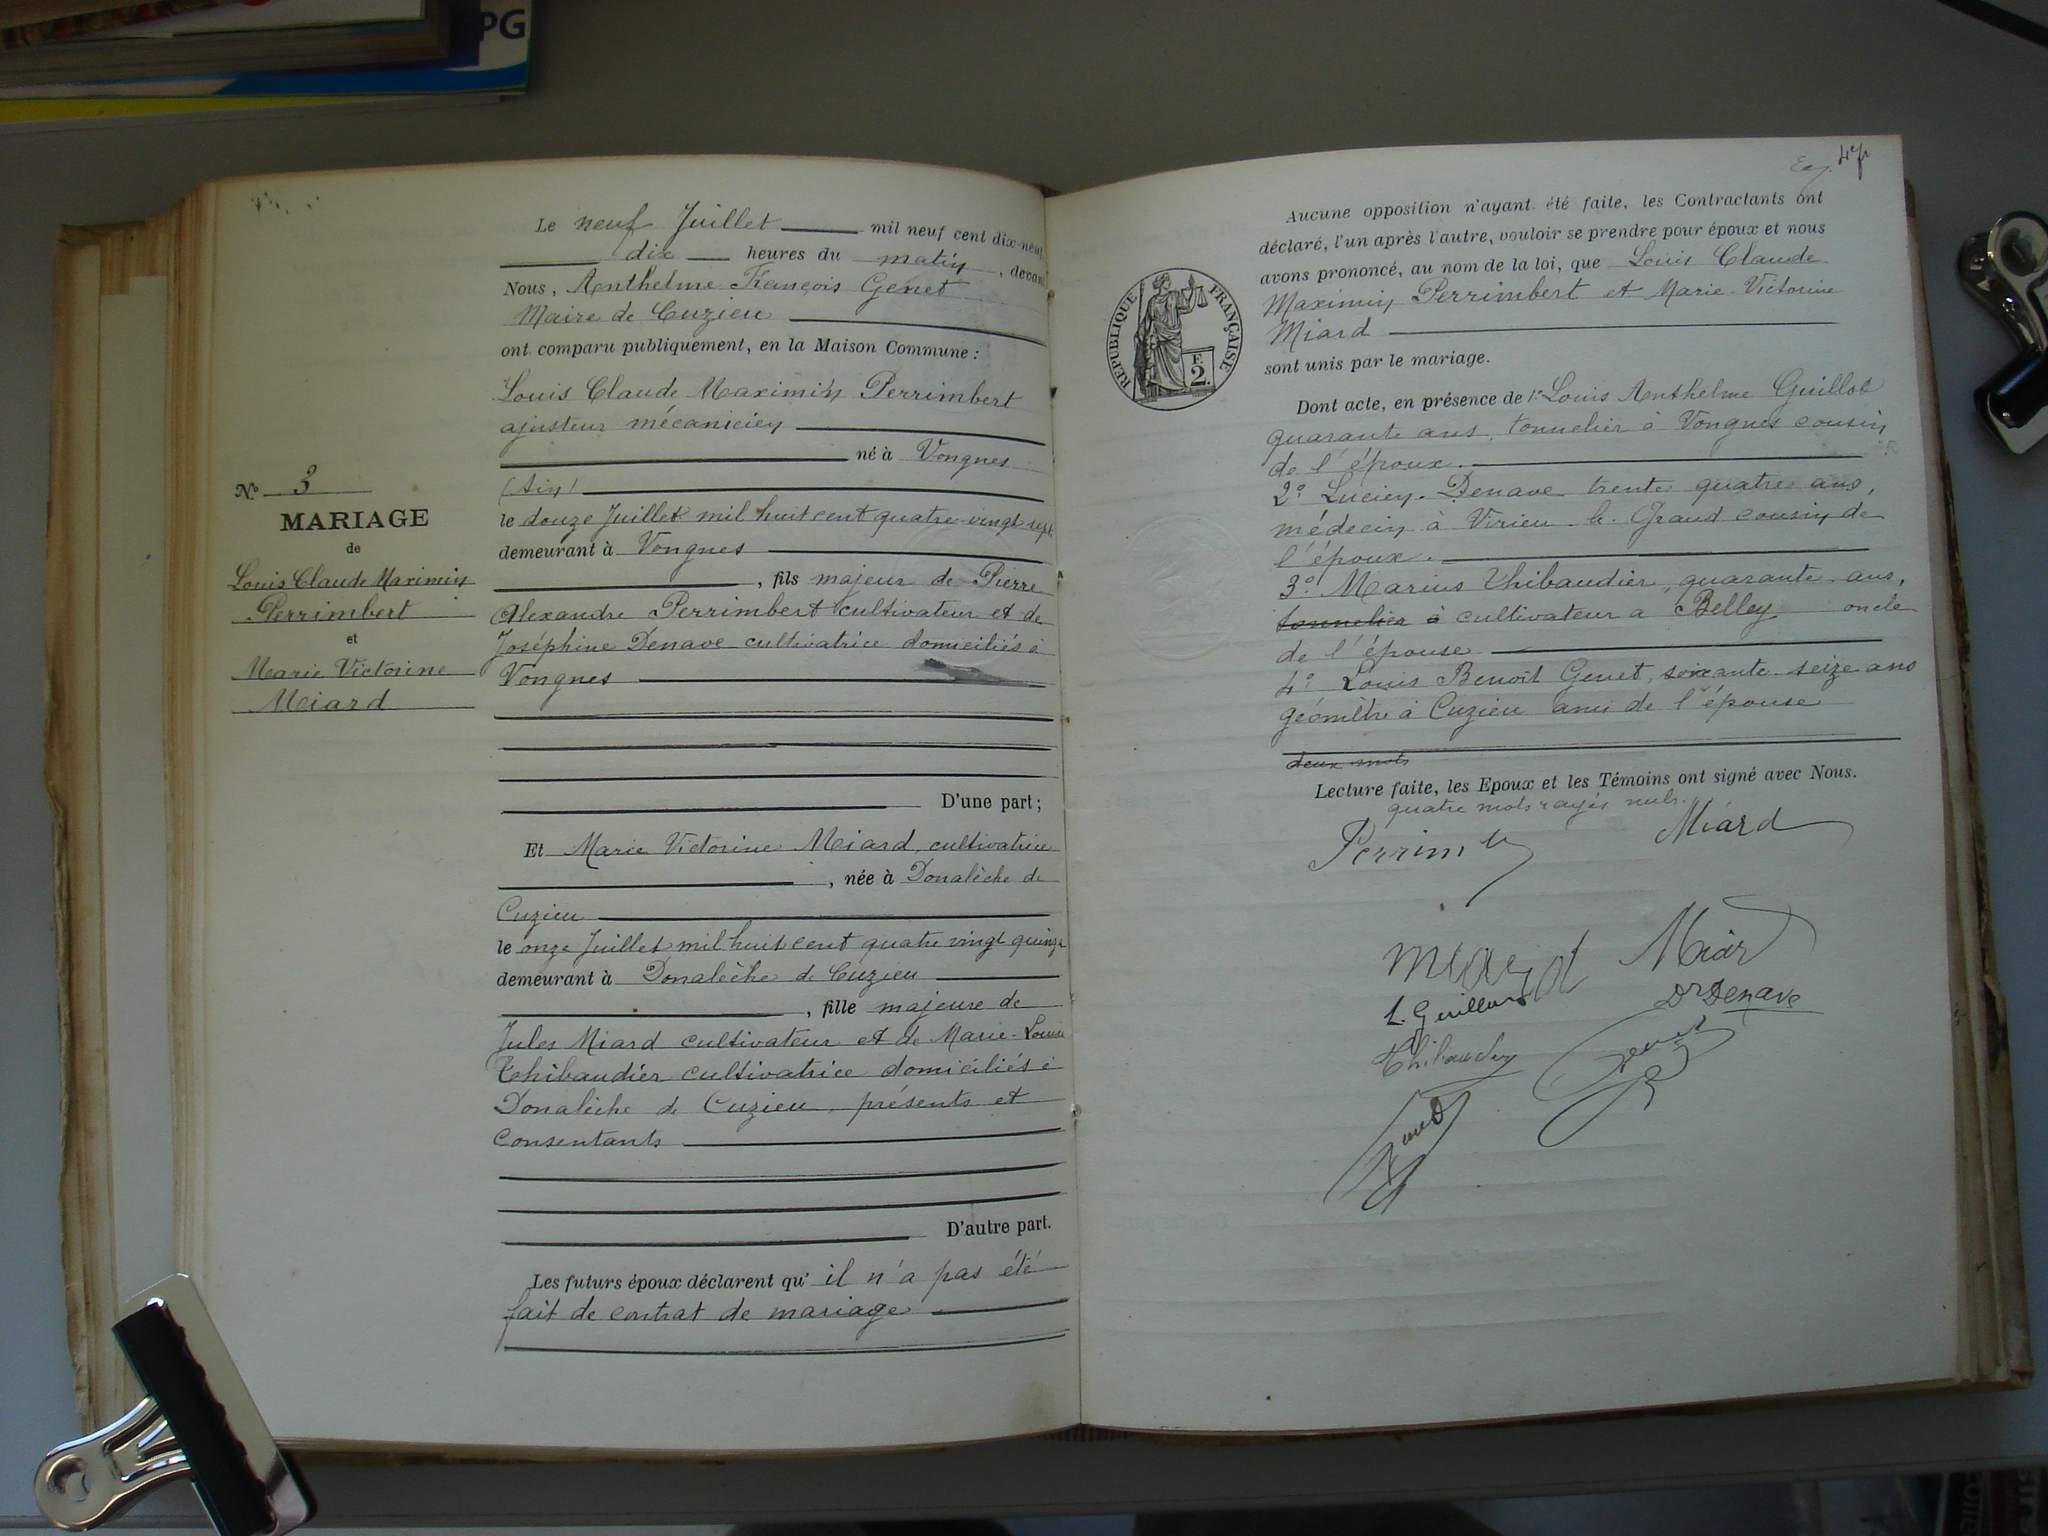 PG
N° 3
MARIAGE
de
Louis Claude Maximin
Perrimbert
et
Marie Victorine
Miard
Le neuf Juillet mil neuf cent dix-neuf
dix heures du matin, devant
Nous, Anthelme François Genet
Maire de Cuzieu
ont comparu publiquement, en la Maison Commune :
Louis Claude Maximin Perrimbert
ajusteur mécanicien
né à Vongnes
(Ain)
le douze Juillet mil huit cent quatre-vingt sept
demeurant à Vongnes
, fils majeur de Pierre
Alexandre Perrimbert cultivateur et de
Joséphine Denave cultivatrice domiciliés à
Vongnes
D'une part ;
Et Marie Victorine Miard, cultivatrice
, née à Donalèche de
Cuzieu
le onze Juillet mil huit cent quatre vingt quinze
demeurant à Donalèche de Cuzieu
, fille majeure de
Jules Miard cultivateur et de Marie-Louise
Thibaudier cultivatrice domiciliés à
Donalèche de Cuzieu, présents et
consentants
D'autre part.
Les futurs époux déclarent qu' il n'a pas été
fait de contrat de mariage
47
RÉPUBLIQUE FRANÇAISE
E
2.
Aucune opposition n'ayant été faite, les Contractants ont
déclaré, l'un après l'autre, vouloir se prendre pour époux et nous
avons prononcé, au nom de la loi, que Louis Claude
Maximin Perrimbert et Marie-Victorine
Miard
sont unis par le mariage.
Dont acte, en présence de 1° Louis Anthelme Guillot
quarante ans, tonnelier à Vongnes cousin
de l'époux.
2° Lucien Denave trente quatre ans,
médecin à Virieu-le-Grand cousin de
l'époux.
3° Marius Thibaudier, quarante ans,
tonnelier à cultivateur à Belley oncle
de l'épouse
4° Louis Benoît Genet, soixante-seize ans
géomètre à Cuzieu ami de l'épouse
deux mots
Lecture faite, les Epoux et les Témoins ont signé avec Nous.
quatre mots rayés nuls.
Miard
Miard
L. Guillot
Dr Denave
Thibaudier
Genet
Genet